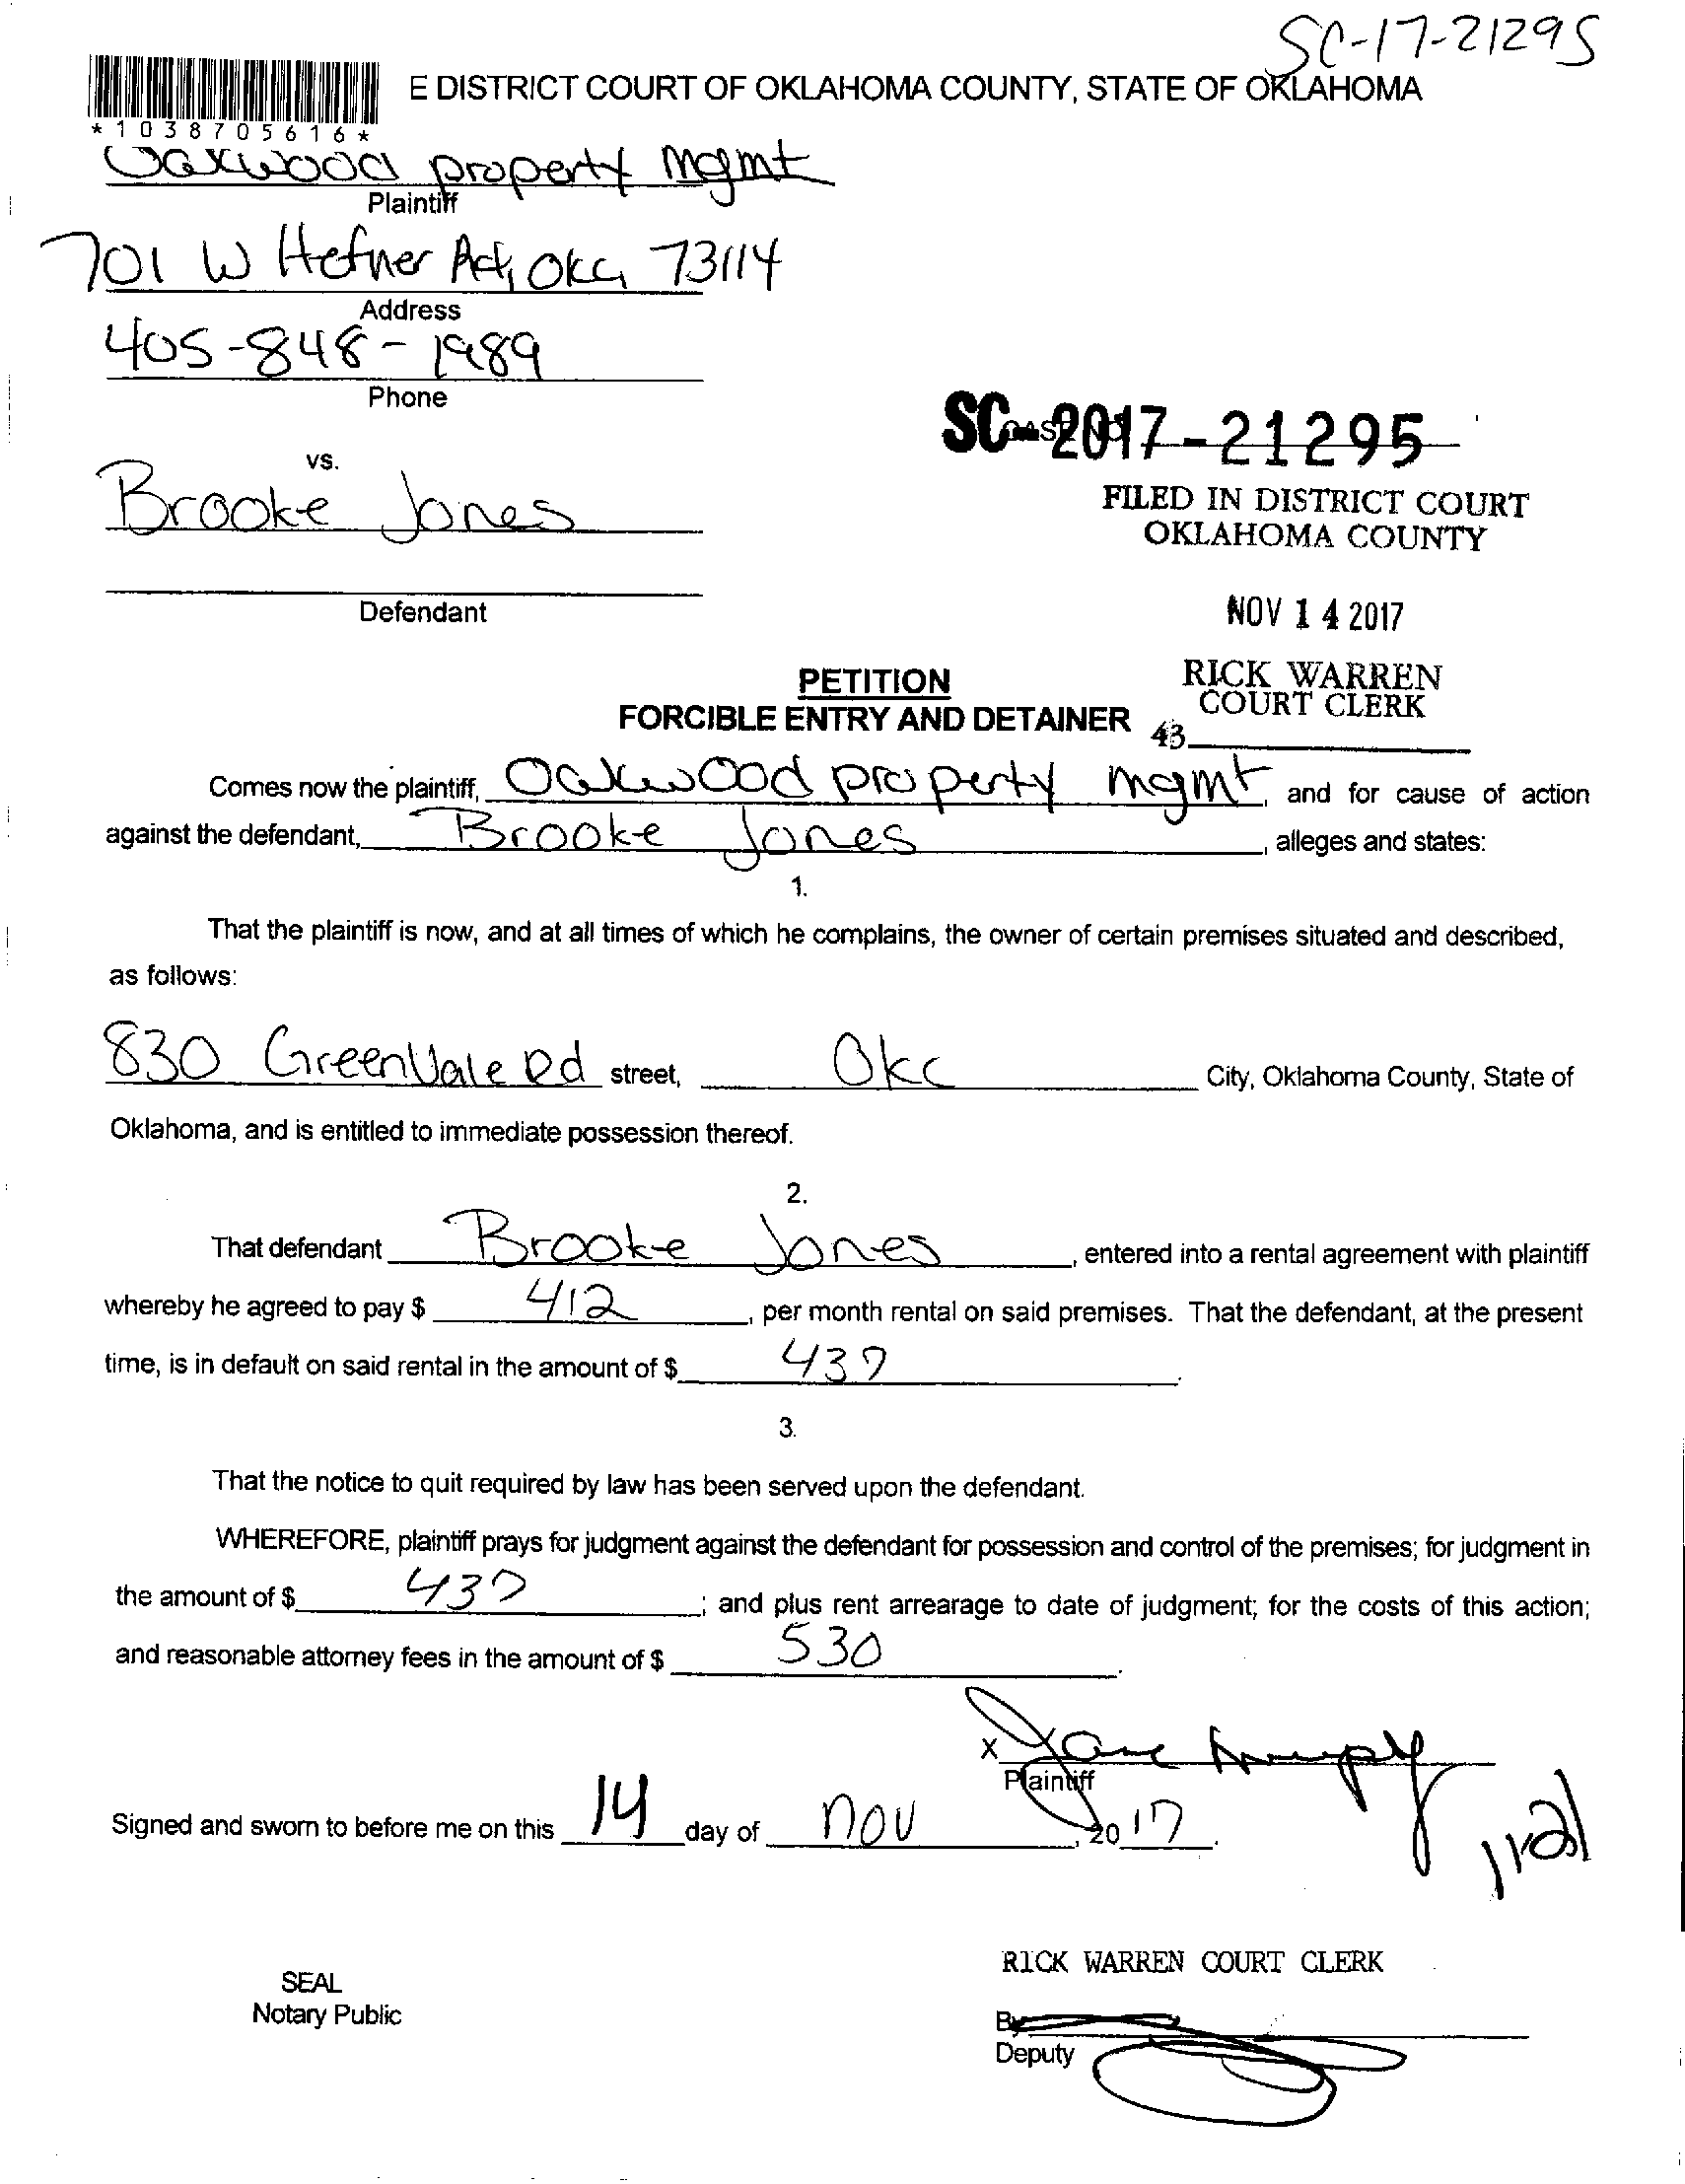 SC-17-21295
E DISTRICT COURT OF OKLAHOMA COUNTY, STATE OF OKLAHOMA
*1038705616*
Oakwood property mgmt
Plaintiff
701 W Hefner Okc 73114
Address
405-848-1989
Phone
SC-2017-21295
vs.
Brooke Jones
FILED IN DISTRICT COURT
OKLAHOMA COUNTY
Defendant
NOV 14 2017
PETITION
RICK WARREN
COURT CLERK
FORCIBLE ENTRY AND DETAINER
43
Comes now the plaintiff, Oakwood property mgmt, and for cause of action
against the defendant, Brooke Jones, alleges and states:
1.
That the plaintiff is now, and at all times of which he complains, the owner of certain premises situated and described,
as follows:
830 GreenVale Rd street, Okc City, Oklahoma County, State of
Oklahoma, and is entitled to immediate possession thereof.
2.
That defendant Brooke Jones, entered into a rental agreement with plaintiff
whereby he agreed to pay $ 412, per month rental on said premises. That the defendant, at the present
time, is in default on said rental in the amount of $ 437.
3.
That the notice to quit required by law has been served upon the defendant.
WHEREFORE, plaintiff prays for judgment against the defendant for possession and control of the premises; for judgment in
the amount of $ 437; and plus rent arrearage to date of judgment; for the costs of this action;
and reasonable attorney fees in the amount of $ 530.
X
Plaintiff
Signed and sworn to before me on this 14 day of nov, 2017.
SEAL
Notary Public
RICK WARREN COURT CLERK
By
Deputy